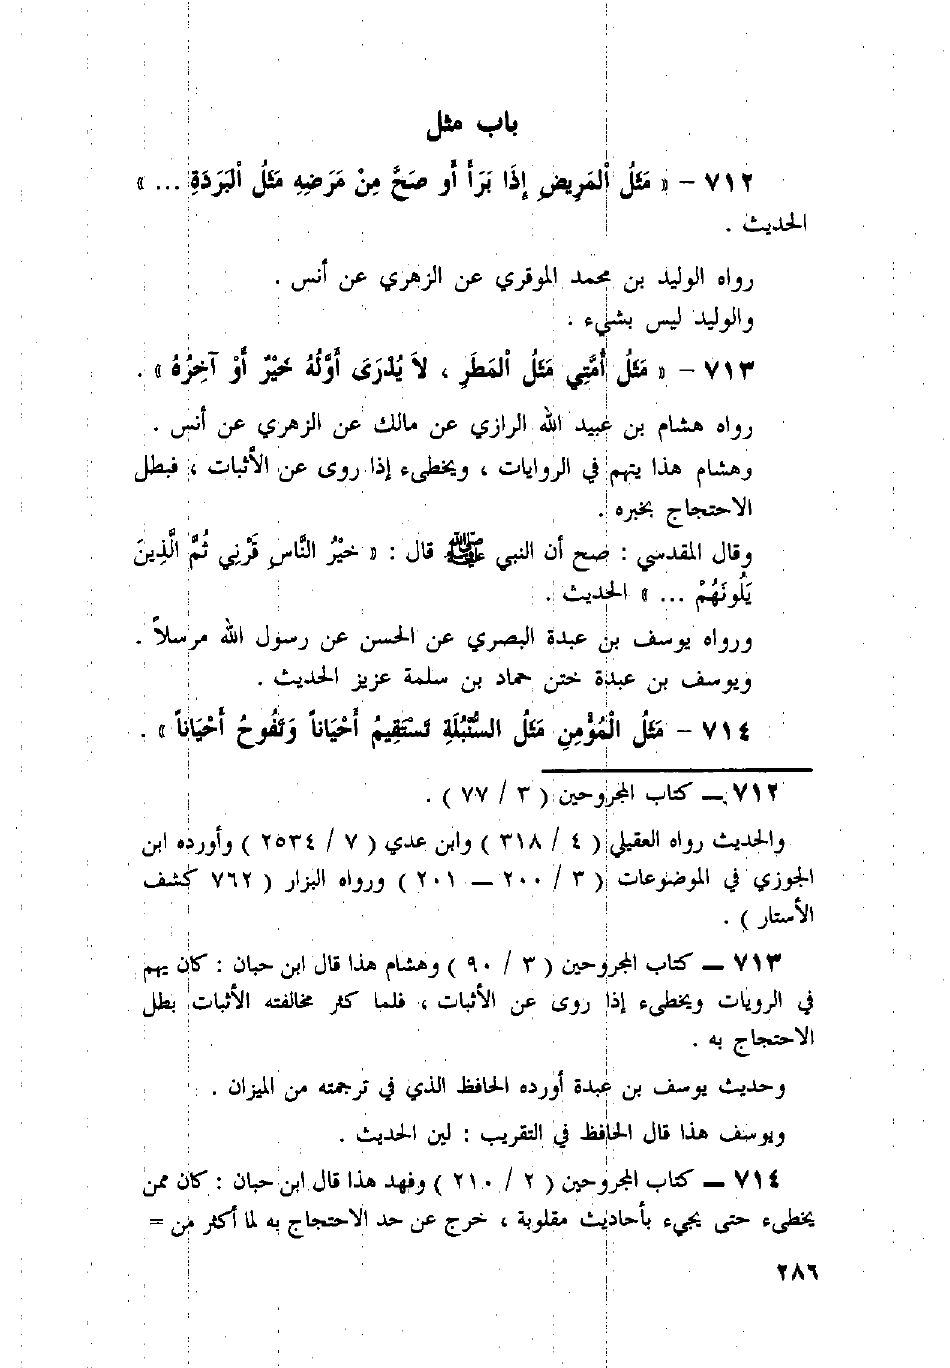 باب مثل
٧١٢ - « مَثَلُ اْلمَرِيضِ إِذَا بَرَأَ أَو صَحَّ مِنْ مَرَضِهِ مَثَلُ اْلبَرَدَةِ ... »
الحديث .
رواه الوليد بن محمد الموقري عن الزهري عن أنس .
والوليد ليس بشيء .
٧١٣ - « مَثَلُ أُمَّتِي مَثَلُ اْلمَطَرِ ، لاَ يُدْرَىَ أَوَّلُهُ خَيْرٌ أَوْ آخِرُهُ » .
رواه هشام بن عبيد الله الرازي عن مالك عن الزهري عن أنس .
وهشام هذا يتهم في الروايات ، ويخطىء إذا روى عن الأثبات ، فبطل
الاحتجاج بخبره .
وقال المقدسي : صح أن النبي ﷺ قال : « خيْرُ النَّاسِ قَرْنِي ثُمَّ الَّذِينَ
يَلُونَهُمْ ... » الحديث .
ورواه يوسف بن عبدة البصري عن الحسن عن رسول الله مرسلاً .
ويوسف بن عبدة ختن حماد بن سلمة عزيز الحديث .
٧١٤ - مَثَلُ الْمُؤْمِنِ مَثَلُ السُّنْبُلَةِ تَسْتَقِيمُ أَحْيَاناً وَتَفُوحُ أَحْيَاناً » .
٧١٢ ــ كتاب المجروحين ( ٣ / ٧٧ ) .
والحديث رواه العقيلي ( ٤ / ٣١٨ ) وابن عدي ( ٧ / ٢٥٣٤ ) وأورده ابن
الجوزي في الموضوعات ( ٣ / ٢٠٠ ــ ٢٠١ ) ورواه البزار ( ٧٦٢ كشف
الأستار ) .
٧١٣ ــ كتاب المجروحين ( ٣ / ٩٠ ) وهشام هذا قال ابن حبان : كان يهم
في الرويات ويخطىء إذا روى عن الأثبات ، فلما كثر مخالفته الأثبات بطل
الاحتجاج به .
وحديث يوسف بن عبدة أورده الحافظ الذي في ترجمته من الميزان .
ويوسف هذا قال الحافظ في التقريب : لين الحديث .
٧١٤ ــ كتاب المجروحين ( ٢ / ٢١٠ ) وفهد هذا قال ابن حبان : كان ممن
يخطىء حتى يجيء بأحاديث مقلوبة ، خرج عن حد الاحتجاج به لما أكثر من =
٢٨٦